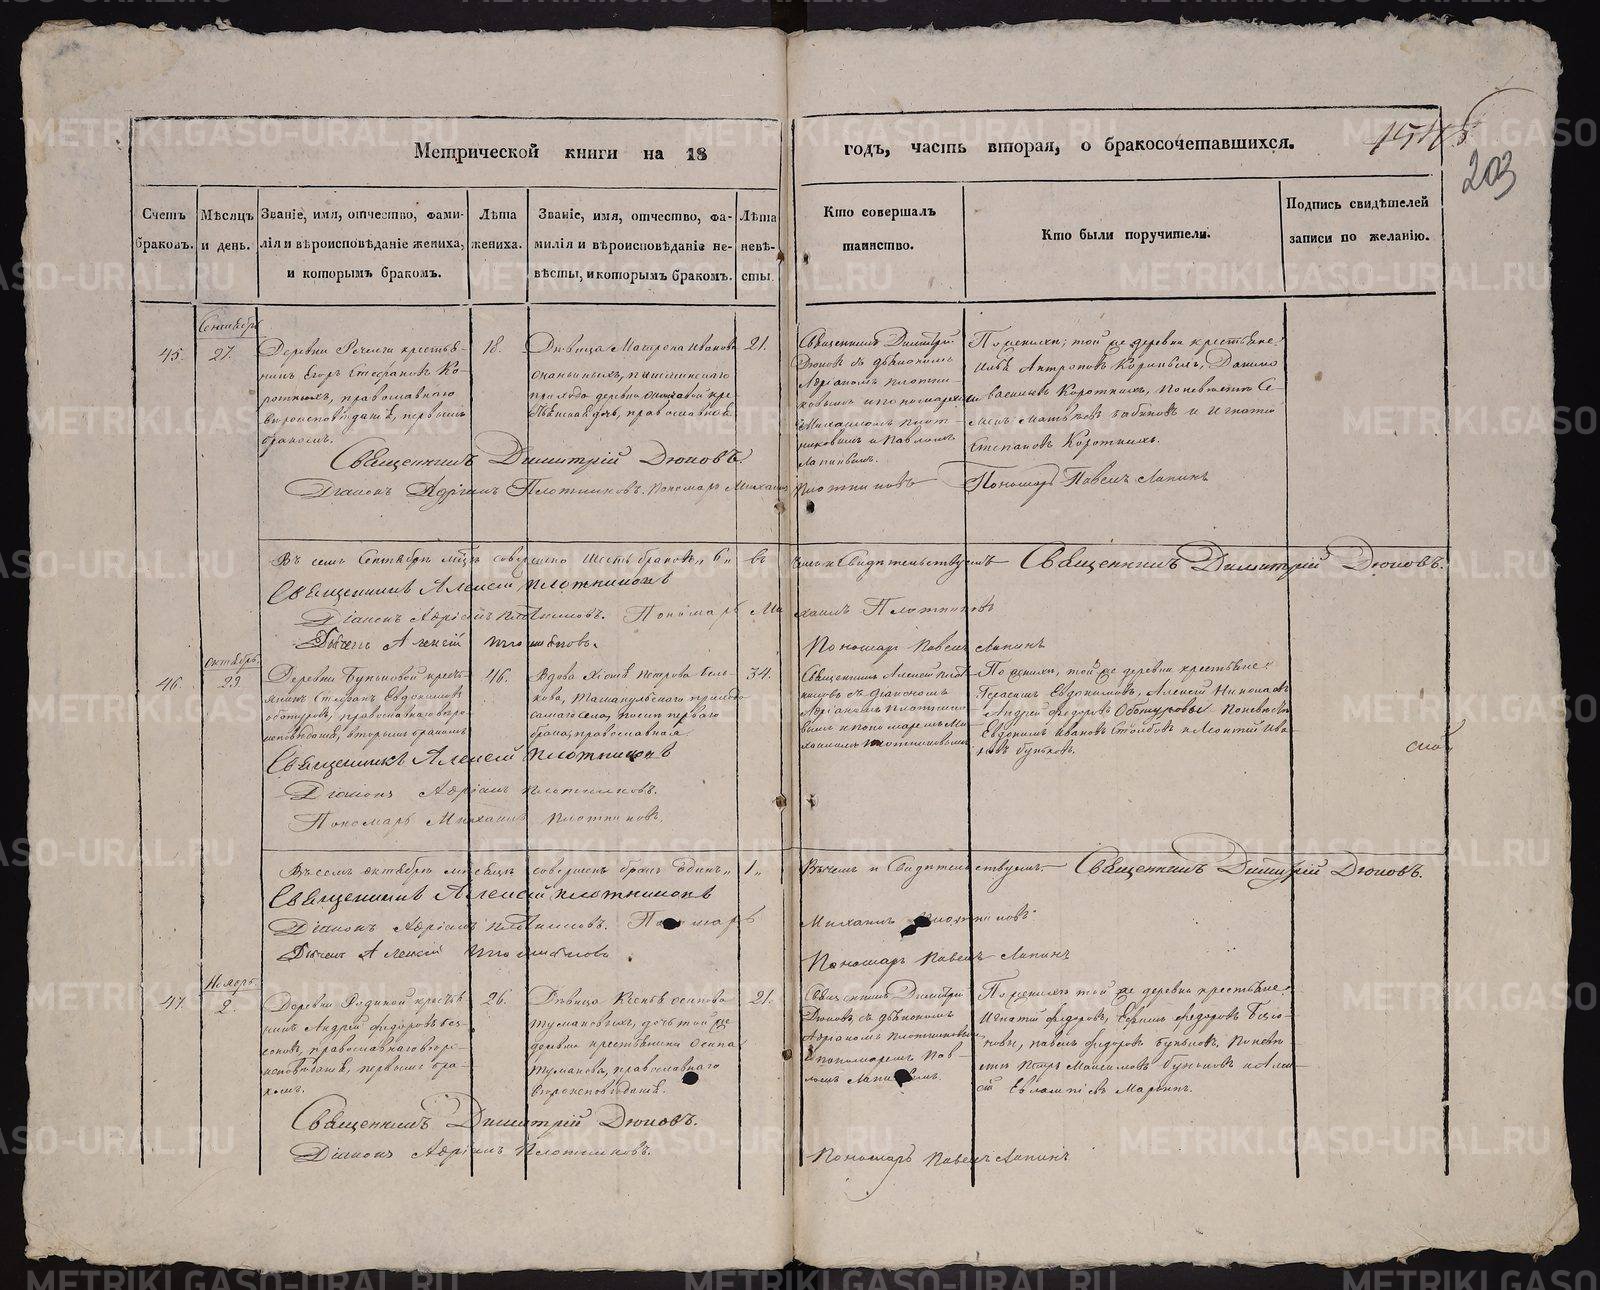 Метрической книги на 18
годъ, часть вторая, о бракосочетавшихся.
203
Счетъ браковъ.
Мѣсяцъ и день.
Званіе, имя, отчество, фамилія и вѣроисповѣданіе жениха, и которымъ бракомъ.
Лѣта жениха.
Званіе, имя, отчество, фамилія и вѣроисповѣданіе невѣсты, и которымъ бракомъ.
Лѣта невѣсты.
Кто совершалъ таинство.
Кто были поручители.
Подпись свидѣтелей записи по желанію.
Сентябрь
45.
27.
Деревни крестья-
нинъ Егоръ Стефановъ Ко-
роткихъ, православнаго
вероисповѣданія, первымъ
бракомъ.
18.
Дѣвица Матрона Иванова
православнаго
21.
Священникъ Димитрій
Дюковъ съ діякономъ
Адріаномъ Плотни-
ковымъ и пономарями
Михаиломъ Плот-
никовымъ и Павломъ
Лапинымъ.
По женихѣ; той же деревни крестьяне
Василіевъ Коротких, по невѣстѣ Се-
и Игнатій
Степановъ Коротких.
Священникъ Димитрій Дюковъ.
Діаконъ Адріанъ Плотниковъ. Пономарь Михаилъ Плотниковъ Пономарь Павелъ Лапинъ
Въ семъ Сентябрѣ мцѣ совершено шесть браковъ „6„ въ чемъ и Свидѣтельствуемъ Священникъ Димитрій Дюковъ.
Священникъ Алексій Плотниковъ
Діаконъ Адріанъ Плотниковъ. Пономарь Михаилъ Плотниковъ
Дьячекъ Алексій Плотниковъ. Пономарь Павелъ Лапинъ
Октябрь
46.
29.
Деревни Буньковой кресть-
янинъ Стефанъ Евдокимовъ
Обатуровъ, православнаго веро-
исповѣданія, вторымъ бракомъ
46.
Вдова Петрова
села, послѣ перваго
брака, православная
34.
Священникъ Алексій Плот-
никовъ съ діакономъ
Адріаномъ Плотнико-
вымъ и пономаремъ Ми-
хаиломъ Плотниковымъ
По женихѣ, той же деревни крестьяне
Герасимъ Евдокимовъ, Алексій Николаевъ
Андрей Федоровъ Обатуровы. По невѣстѣ
Евдокимъ Ивановъ и Леонтій Ива-
новъ Буньковъ.
Священникъ Алексій Плотниковъ
Діаконъ Адріанъ Плотниковъ.
Пономарь Михаилъ Плотниковъ.
Въ семъ октябрѣ мѣсяцѣ совершенъ бракъ одинъ „1„ въ чемъ и Свидѣтельствуемъ. Священникъ Димитрій Дюковъ.
Священникъ Алексій Плотниковъ
Діаконъ Адріанъ Плотниковъ. Пономарь Михаилъ Плотниковъ
Дьячекъ Алексій Плотниковъ Пономарь Павелъ Лапинъ
Ноябрь
47.
2.
Деревни крестья-
нинъ Андрей Федоровъ
православнаго веро-
исповѣданія, первымъ бра-
комъ.
26.
Дѣвица Ксенія Осипова
Тумановыхъ, дочь той же
деревни крестьянина Осипа
Туманова, православнаго
вероисповѣданія.
21.
Священникъ Димитрій
Дюковъ съ діякономъ
Адріаномъ Плотниковымъ
и пономаремъ Пав-
ломъ Лапинымъ.
По женихѣ той же деревни крестьяне
Игнатій Федоровъ, Ефимъ Федоровъ
Павелъ Федоровъ Буньковъ. По невѣ-
стѣ Петръ Максимовъ Буньковъ и Алек-
сій Евлампіевъ
Священникъ Димитрій Дюковъ.
Діаконъ Адріанъ Плотниковъ. Пономарь Павелъ Лапинъ
METRIKI.GASO-URAL.RU